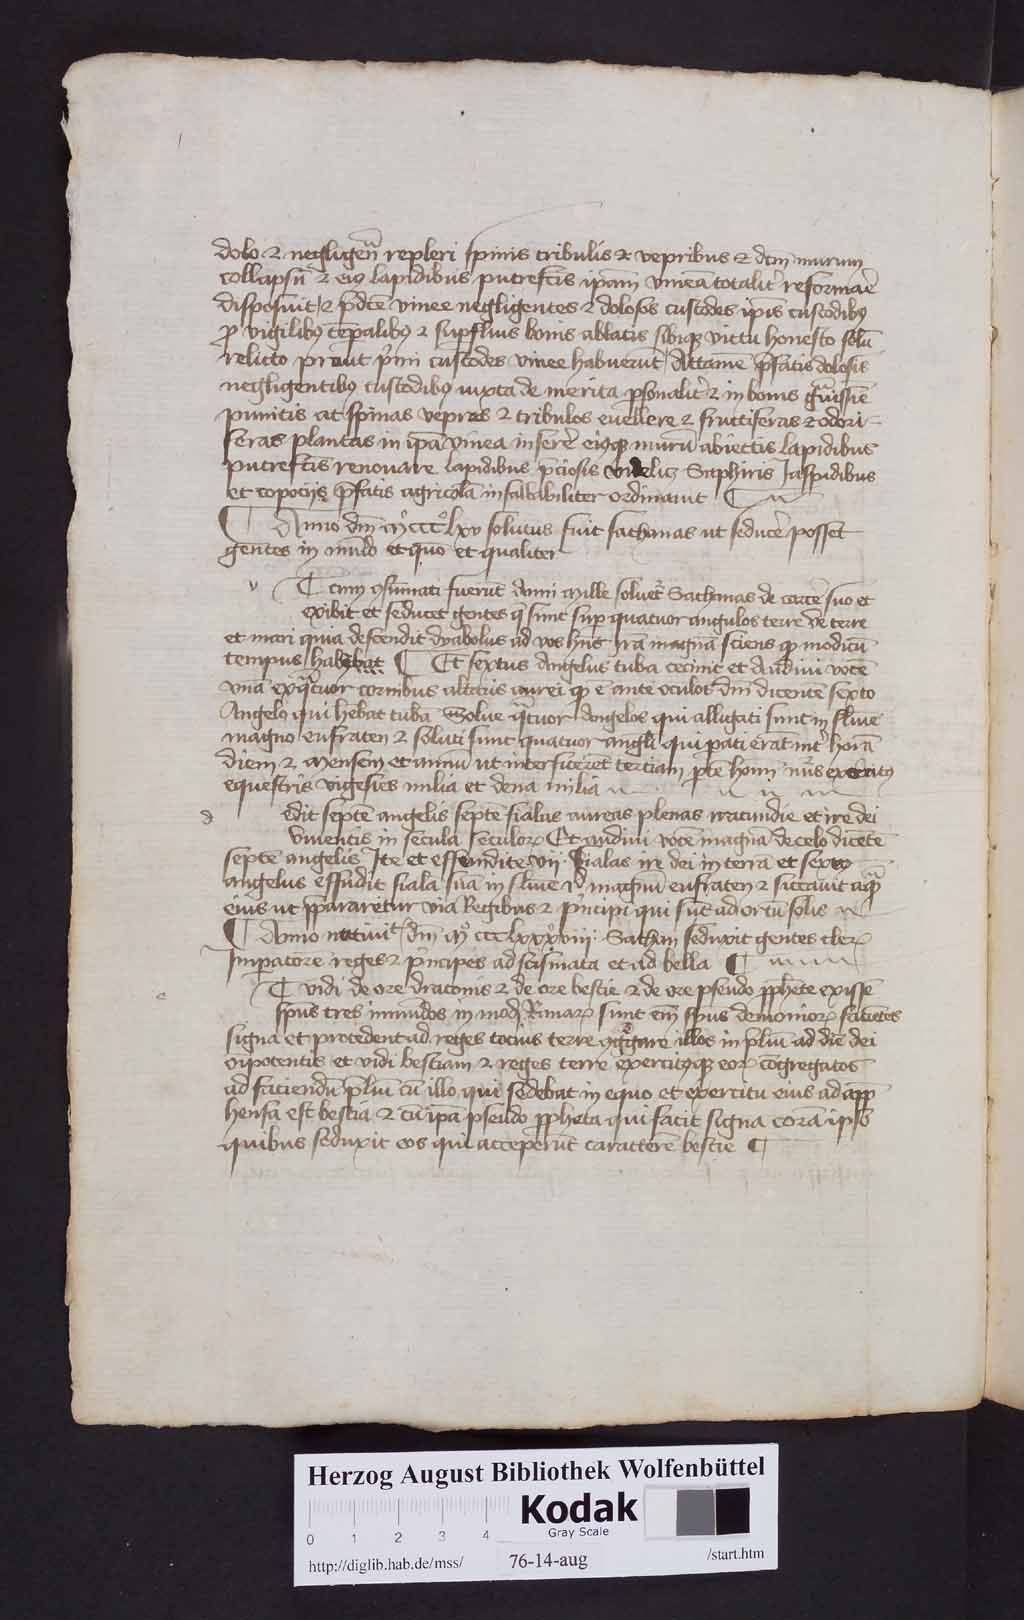 dolo ⁊ negligen͞a repleri spinis tribulis ⁊ vepribus ⁊ dc̄m murum
collapsū ⁊ eiꝰ lapidibus putrefc̄is ip̄am vineā totalit͛ reformar̄e
disposuit / ⁊ p̄dc̄e vinee negligentes ⁊ dolosos custodes ip̄is custodibꝰ
ꝓ vigilibꝰ tēpalibꝰ ⁊ suꝑfluis bonis ablatis sibiqꝫ victu honesto solū
relicto prout p͛mi custodes vinee habuerūt / Attamē p̄fatis dolosis
negligentibꝰ custodibꝰ iuxta de merita ꝑsonalit͛ ⁊ in bonis gᵃuissīe
punitis at spinas vepres ⁊ tribulos euellere ⁊ fructiferas ⁊ odori
feras plantas in ip̄a vinea inserer̄e eiusqꝫ murū abiectis lapidibus
putrefc̄is renouare lapidibus p̄ciosis videlicꝫ Saphiris Jaspidibus
et topociis p̄fatis agricolam infallibiliter ordinauit ¶
¶ Anno dn̄i Mº cccº lxv solutus fuit sathanas ut seducer̄e possēt
gentes in mūdo et quo et qualiter
v ¶ cum ꝯsūmati fuerūt Anni Mille soluet͛ Sathanas de carcer̄e suo et
exibit et seducet gentes q̄ sunt suꝑ quatuor angulos terre ve terre
et mari quia descendit dyabolus ad vos hn̄s irā magnā sciens qꝫ modicū
tempus habebat ¶ Et sextus Angelus tuba cecinit et Audiui vocē
vnā ex qᵃtuor cornibus altaris aurei qꝫ ē ante oculos dn̄i dicentē sexto
Angelo qui hēbat tubā Solue qᵃtuor Angelos qui alligati sunt in flūie
magno eufraten ⁊ soluti sunt quatuor angli qui pati erāt int͛ horā
diem ⁊ Mensem et annū ut interficeret tertiam ꝑtē hom̄i nūs exercitꝰ
equestris vigesies milia et dena milia
d edit septē angelis septē fialas aureas plenas iracundie et ire dei
viuentis in secula seculoꝝ Et audiui vocē magnā de celo dicētē
septē angelis Ite et effundite vij fialas ire dei in terra et sexto
angelus effudit fialā suā in flūie magnū eufraten ⁊ siccauit aqᵃ
eius ut p̄pararetur via Regibus ⁊ p͛ncipi qui sūt ad ortū solis
¶ Anno natiuit͛ dn̄i Mº ccclxxxviiiº Sathan seduxit gentes cleꝝ
Imperatore reges ⁊ principes ad scismata et ad bella ¶
e ¶ vidi de ore draconis ⁊ de ore bestie ⁊ de ore pseudo ꝓphete exisse
sp̄us tres inmūdos in modū Ranaꝝ sunt em̄ sp̄us demonioꝝ facientes
signa et procedent ad reges tocius terre ꝯgᵉgare illos in p̄liū ad diē dei
oīpotentis et vidi bestiam ⁊ reges terre exercitusqꝫ eoꝝ cōgregatos
ad faciendū p̄liū cū illo qui sedebat in equo et exercitu eius ad app̄
hensa est bestia ⁊ cū ip̄a pseudo ꝓpheta qui facit signa corā ipso
quibus seduxit eos qui acceperūt caracterē bestie ¶
Herzog August Bibliothek Wolfenbüttel
0 1 2 3 4
Kodak
Gray Scale
http://diglib.hab.de/mss/ 76-14-aug /start.htm